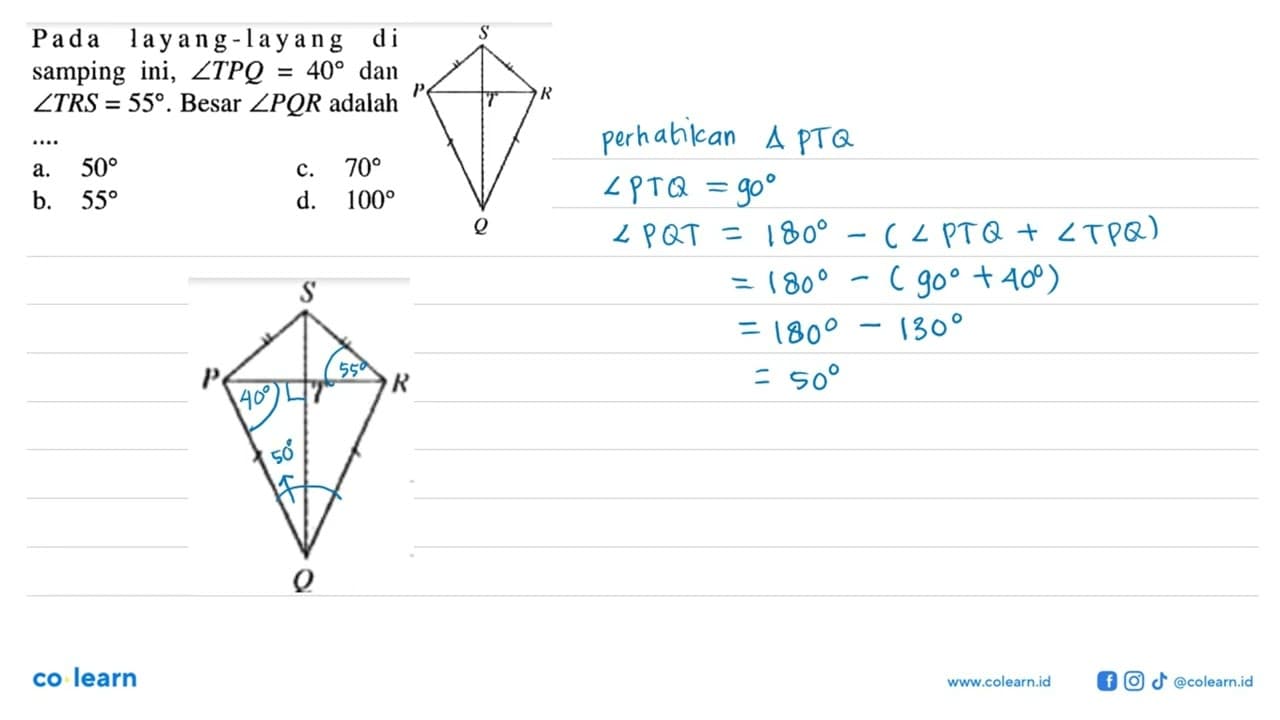 Pada layang-layang di
samping ini, ∠TPQ = 40° dan
∠TRS = 55°. Besar ∠PQR adalah
....
a. 50° c. 70°
b. 55° d. 100°
S
P
T
R
Q
perhatikan Δ PTQ
∠PTQ = 90°
∠PQT = 180° - (∠PTQ + ∠TPQ)
= 180° - (90° + 40°)
= 180° - 130°
= 50°
S
P
40°
T
55°
R
50°
Q
co learn
www.colearn.id
@colearn.id